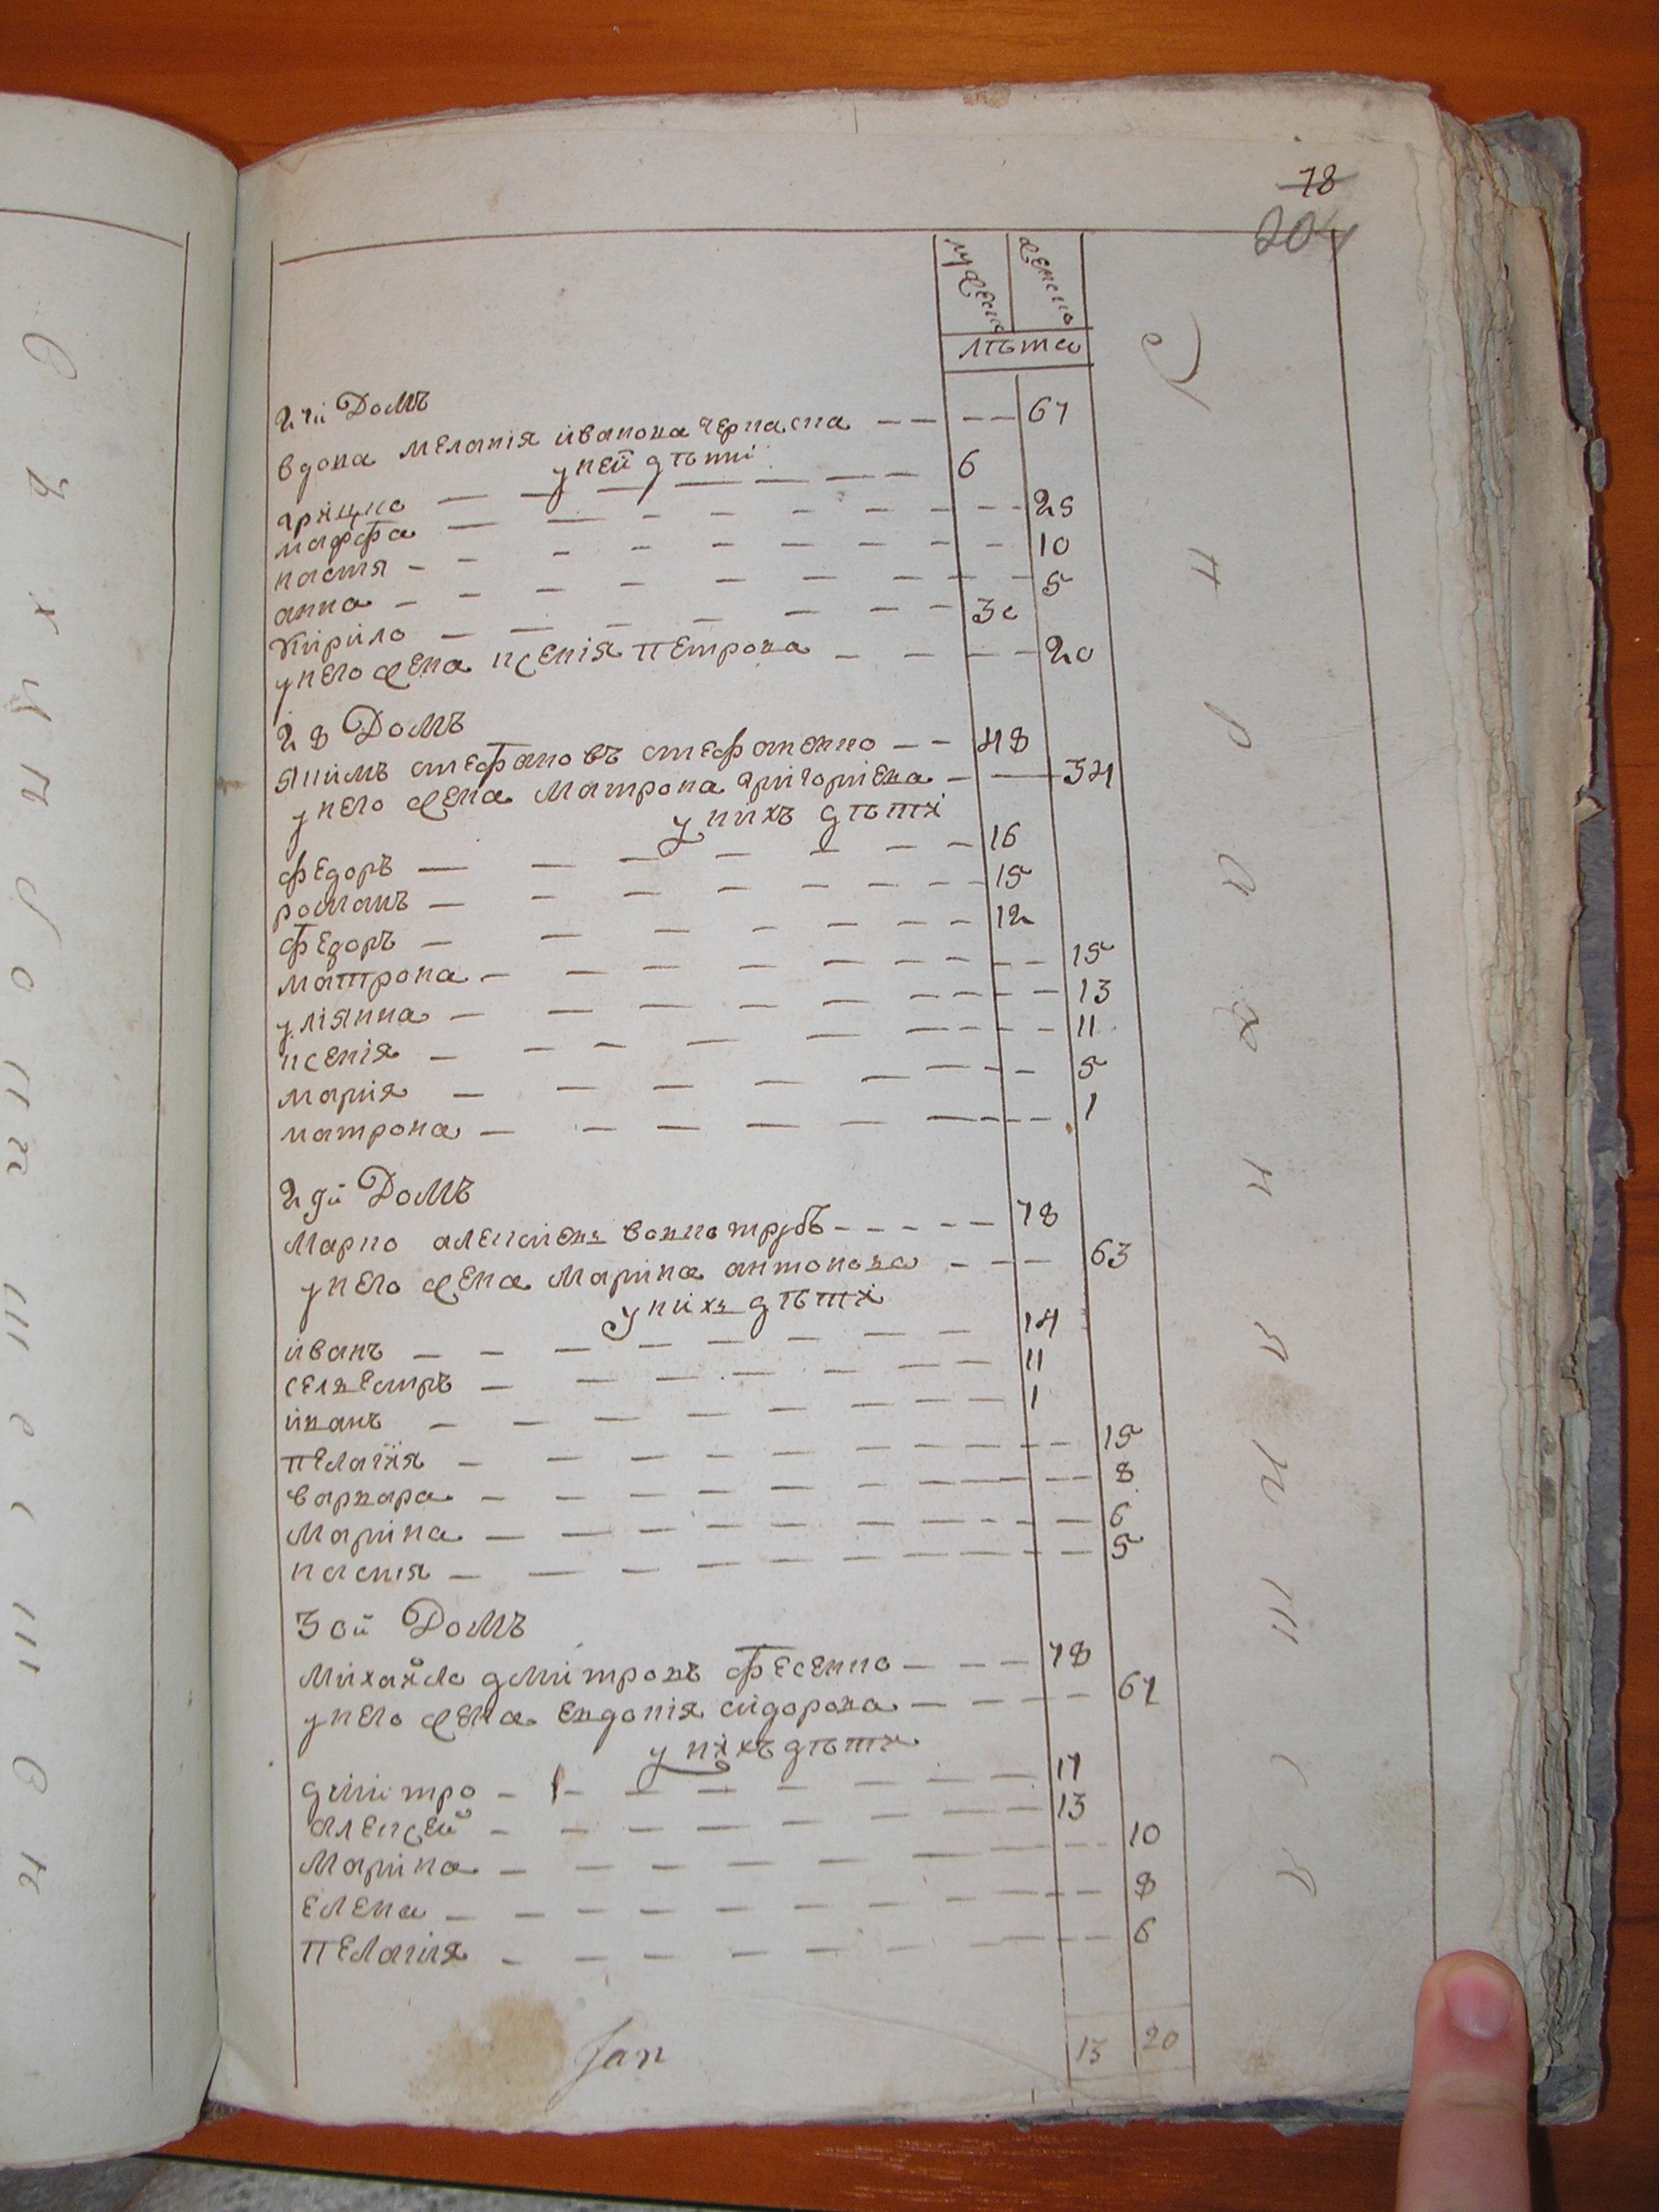 18
204
мужеска женска
лѣта
27й Домъ
вдова меланія иванова черкаска — — — — 61
у ней дѣти
грицко — — — — — — 6
марфа — — — — — — 25
настя — — — — — — 10
анна — — — — — — 5
кирило — — — — — — 30
у него жена ксенія петрова — — — — 20
28 Домъ
якимъ стефановъ стефаненко — — 48
у него жена матрона григориева — — 34
у нихъ дѣти
федоръ — — — — — — 16
романъ — — — — — — 15
федоръ — — — — — — 12
матрона — — — — — — 15
уліянна — — — — — — 13
ксенія — — — — — — 11
мария — — — — — — 5
матрона — — — — — — 1
29й Домъ
Марко алексиевъ вовкотрубъ — — — — — 78
у него жена Марина антонова — — — 63
у нихъ дѣти
иванъ — — — — — — 14
селвестръ — — — — — — 11
иванъ — — — — — — 1
пелагия — — — — — — 15
варвара — — — — — — 8
Марина — — — — — — 6
настя — — — — — — 5
30й Домъ
Михайло дмитровъ фесенко — — — 78
у него жена евдокія сидорова — — — — 61
у нихъ дѣти
дмитро — — — — — — 17
алексей — — — — — — 13
Марина — — — — — — 10
елена — — — — — — 8
пелагия — — — — — — 6
13 20